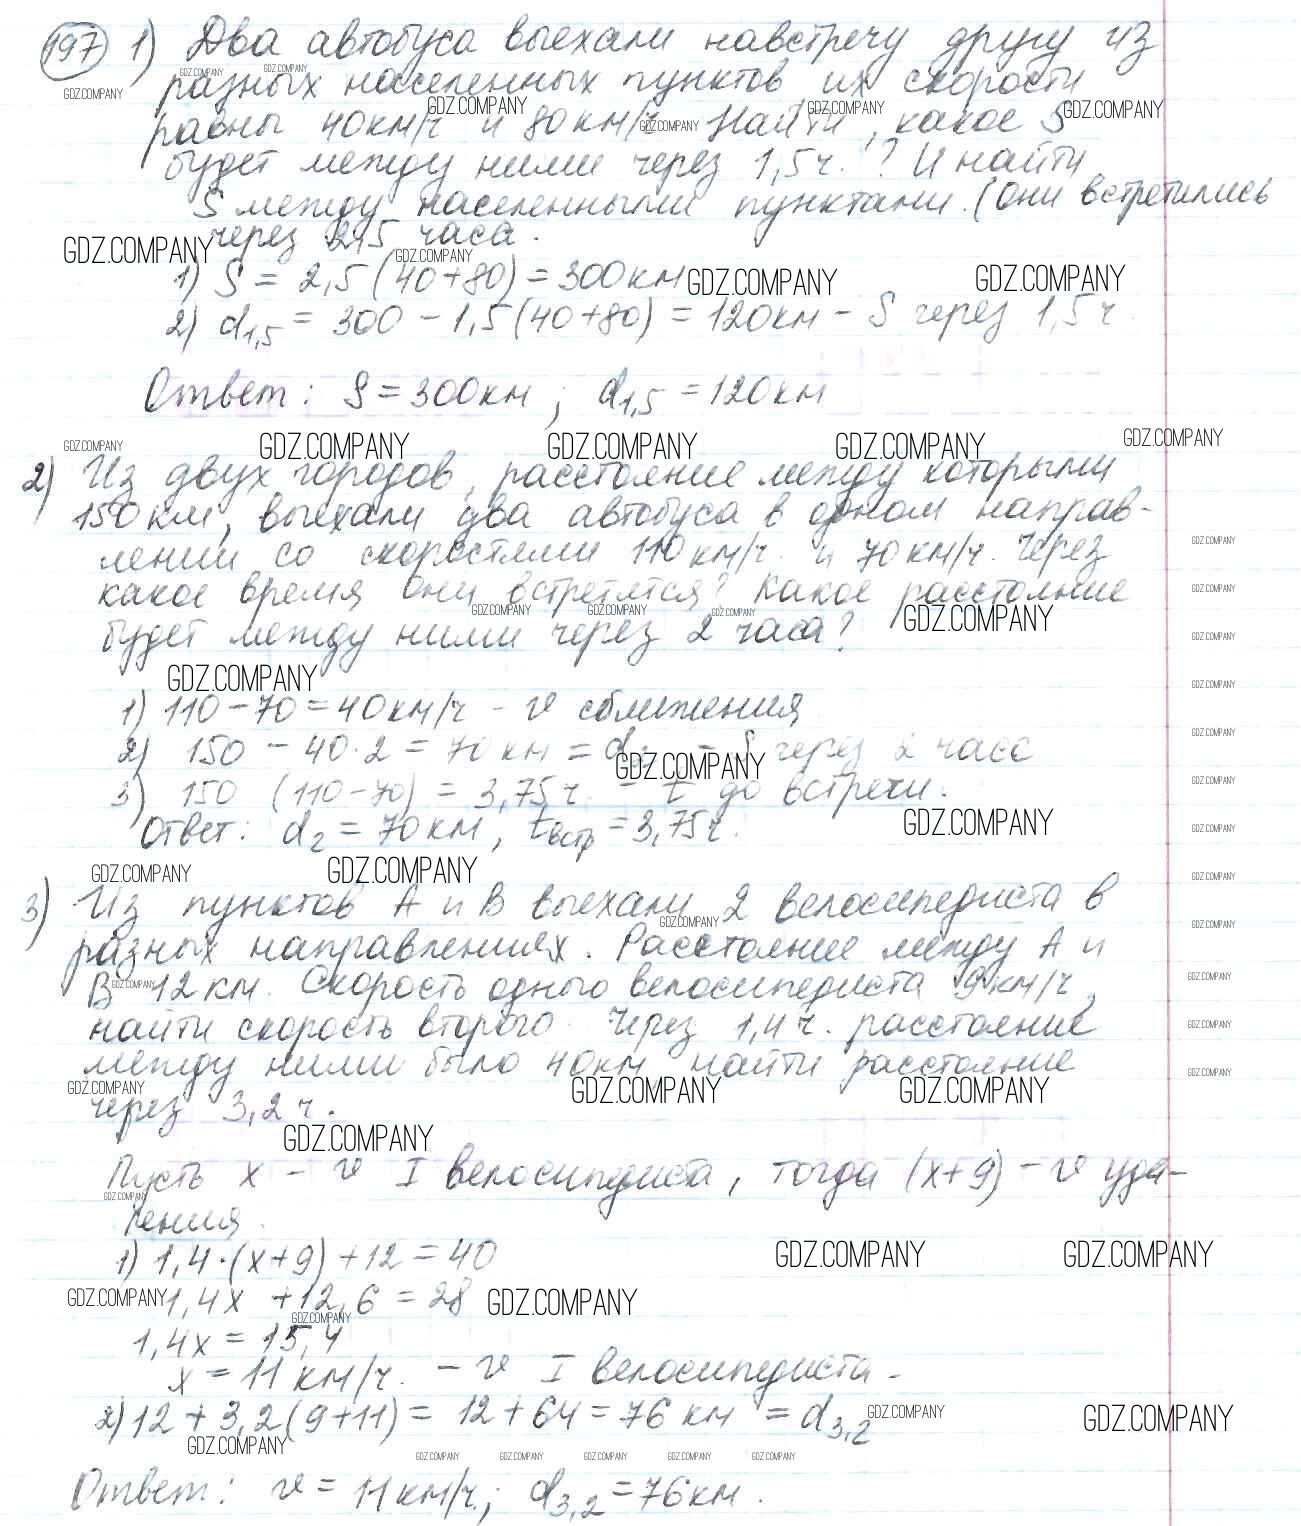 197 1) Два автобуса выехали навстречу другу из
разных населенных пунктов их скорости
равны 40км/ч и 80км/ч. Найти, какое S
будет между ними через 1,5ч.? И найти
S между населенными пунктами. (Они встретились
через 2,5 часа.
1) S = 2,5 (40+80) = 300км
2) d1,5 = 300 - 1,5(40+80) = 120км - S через 1,5ч.
Ответ: S = 300км; d1,5 = 120км
2) Из двух городов, расстояние между которыми
150км, выехали два автобуса в одном направ-
лении со скоростями 110км/ч. и 70км/ч. Через
какое время они встретятся? Какое расстояние
будет между ними через 2 часа?
1) 110-70=40км/ч - v сближения
2) 150 - 40·2 = 70км = d2 = S через 2 часа
3) 150 (110-70) = 3,75ч. - t до встречи.
Ответ: d2 = 70км, tвстр = 3,75ч.
3) Из пунктов А и В выехали 2 велосипедиста в
разных направлениях. Расстояние между А и
В 12км. Скорость одного велосипедиста 9км/ч,
найти скорость второго. Через 1,4ч. расстояние
между ними было 40км, найти расстояние
через 3,2ч.
Пусть x - v I велосипедиста, тогда (x+9) - v уда-
ления.
1) 1,4·(x+9)+12=40
1,4x +12,6 = 28
1,4x = 15,4
x = 11км/ч. - v I велосипедиста.
2) 12 + 3,2(9+11) = 12+64 = 76км = d3,2
Ответ: v = 11км/ч.; d3,2 = 76км.
GDZ.COMPANY